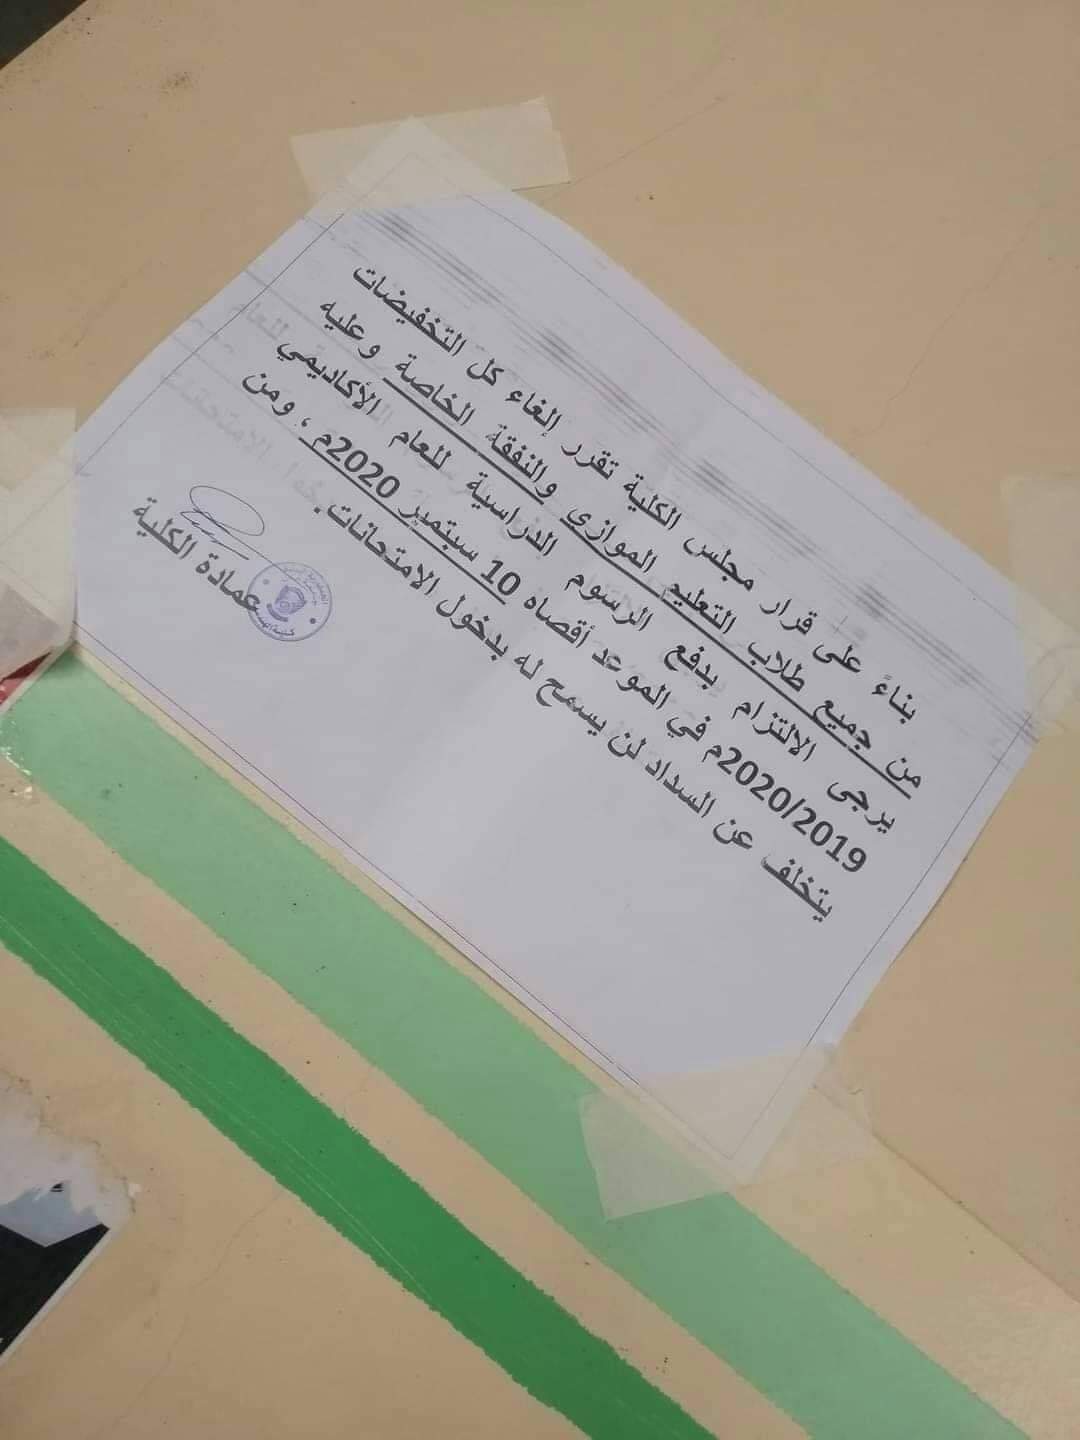 بناءً على قرار مجلس الكلية تقرر إلغاء كل التخفيضات
من جميع طلاب التعليم الموازي والنفقة الخاصة وعليه
يرجى الالتزام بدفع الرسوم الدراسية للعام الأكاديمي
2020/2019م في الموعد أقصاه 10 سبتمبر 2020م ، ومن
يتخلف عن السداد لن يسمح له بدخول الامتحانات.
عمادة الكلية